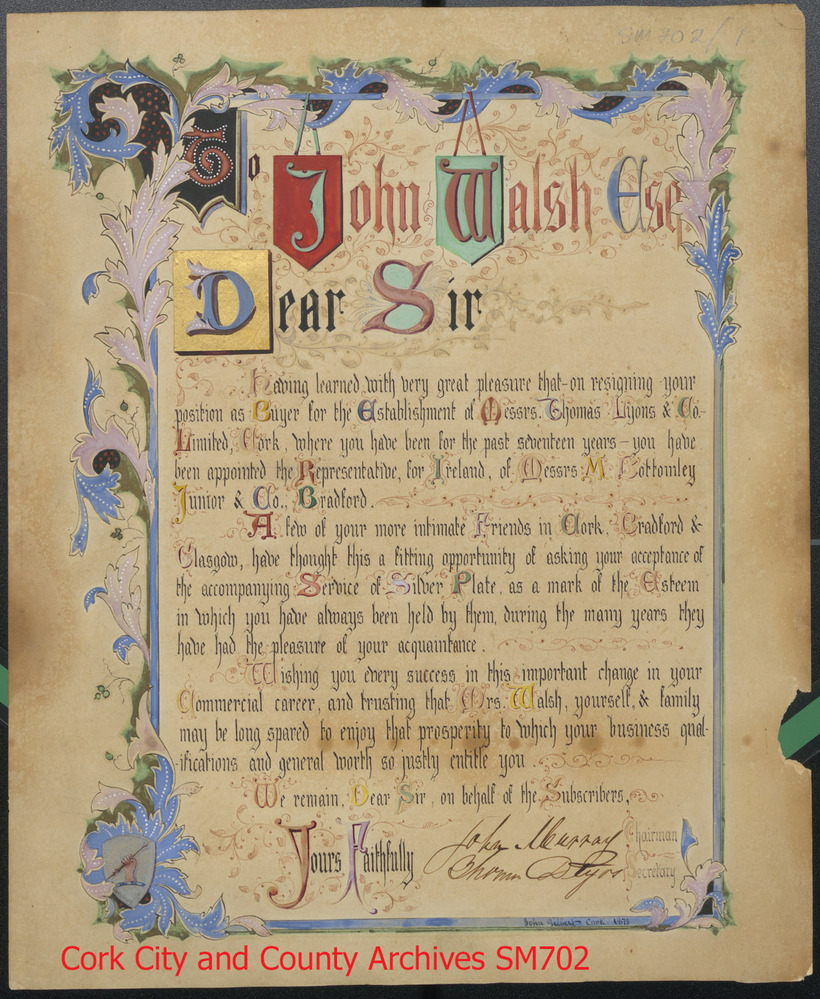 SM 702/1
To John Walsh Esq
Dear Sir
Having learned with very great pleasure that on resigning your
position as Buyer for the Establishment of Messrs. Thomas Lyons & Co.
Limited, Cork, where you have been for the past seventeen years – you have
been appointed the Representative, for Ireland, of Messrs M. Bottomley
Junior & Co., Bradford.
A few of your more intimate Friends in Cork, Bradford &
Glasgow, have thought this a fitting opportunity of asking your acceptance of
the accompanying Service of Silver Plate, as a mark of the Esteem
in which you have always been held by them, during the many years they
have had the pleasure of your acquaintance.
Wishing you every success in this important change in your
Commercial career, and trusting that Mrs. Walsh, yourself, & family
may be long spared to enjoy that prosperity to which your business qual-
ifications and general worth so justly entitle you.
We remain, Dear Sir, on behalf of the Subscribers,
Yours Faithfully
John Murray Chairman
Secretary
John Cork
Cork City and County Archives SM702